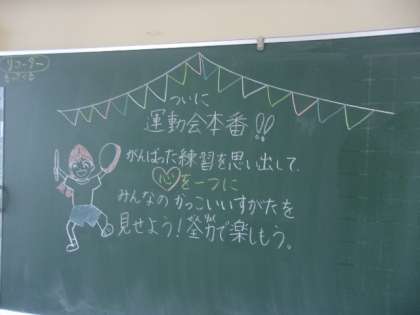 リコーダー
もってくる
ついに
運動会本番!!
がんばった練習を思い出して、
心を一つに
みんなのかっこいいすがたを
見せよう!全力で楽しもう。